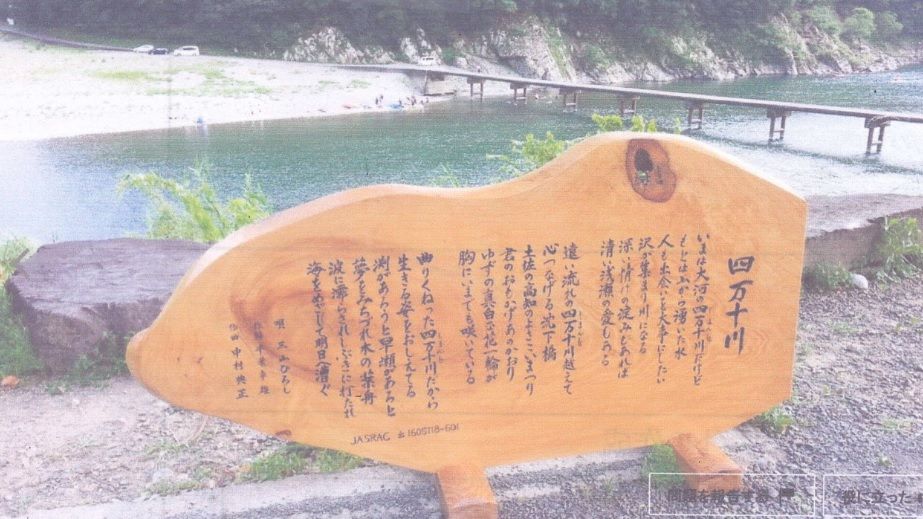 四万十川
いまは大河の四万十川だけど
もとは山から湧いた水
人も出会いを大事にしたい
沢が集まり川になる
深い情けの淀みもあれば
清い浅瀬の愛もある
遠い流れの四万十川越えて
心つなげる沈下橋
土佐の高知のよさこいまつり
君のおもかげあのかおり
ゆずの真白な花一輪が
胸にいまでも咲いている
曲りくねった四万十川だから
生きる姿をおしえてる
渕があろうと早瀬があろと
夢をみちづれ木の葉舟
波に濡らされしぶきに打たれ
海をめざして明日へ漕ぐ
唄 三山ひろし
作曲 中村典正
JASRAC 出1605118-601
問題を報告する
役に立った